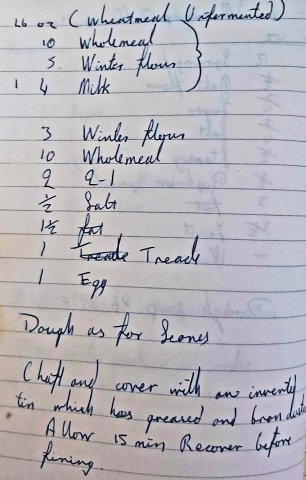 26 oz (Wheatmeal Unfermented)
10 Wholemeal
5 Winter flour
1 4 Milk
3 Winter flour
10 Wholemeal
2 2-1
½ Salt
1½ fat
1 Treacle
1 Egg
Dough as for Scones
Chaff and cover with an inverted
tin which has greased and bran dusted
Allow 15 min Recover before
firing.